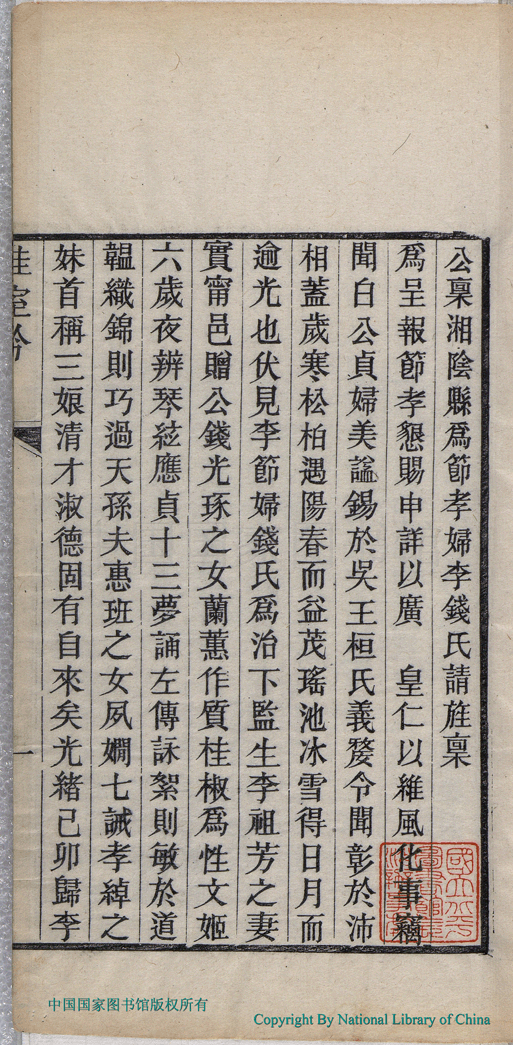 公稟湘陰縣爲節孝婦李錢氏請旌稟
爲呈報節孝懇賜申詳以廣　皇仁以維風化事竊
聞白公貞婦美諡錫於吳王桓氏義嫠令聞彰於沛
相蓋歲寒松柏遇陽春而益茂瑤池冰雪得日月而
逾光也伏見李節婦錢氏爲治下監生李祖芳之妻
實甯邑贈公錢光琢之女蘭薫作質桂椒爲性文姬
六歲夜辨琴絃應貞十三夢誦左傳詠絮則敏於道
韞織錦則巧過天孫夫惠班之女夙嫺七誡孝綽之
妹首稱三娘清才淑德固有自來矣光緒己卯歸李
一
中国国家图书馆版权所有
Copyright By National Library of China